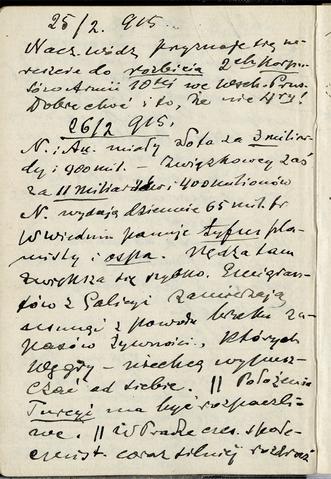 25/2. 915.
Nacz. wódz przyznaje się na-
reszcie do rozbicia 2ch korpu-
sów Armii 10tej we Wsch. Prus.
Dobre choć i to, że nie 4ry!
26/2 915.
N. i Au. miały złota za 3 miliar-
dy i 900 mil. – Związkowcy zaś
za 11 miliardów i 400 milionów
N. wydają dziennie 65 mil. fr
W Wiedniu panuje tyfus pla-
misty i ospa. Nędza tam
zwiększa się szybko. Emigran-
tów z Galicyi zamierzają
usunąć z powodu braku za-
pasów żywności, których
Węgry – niechcą wypusz-
czać od siebie. || Położenie
Turcyi ma być rozpaczli-
we. || W Pradze czes. społe-
czeńst. coraz silniej